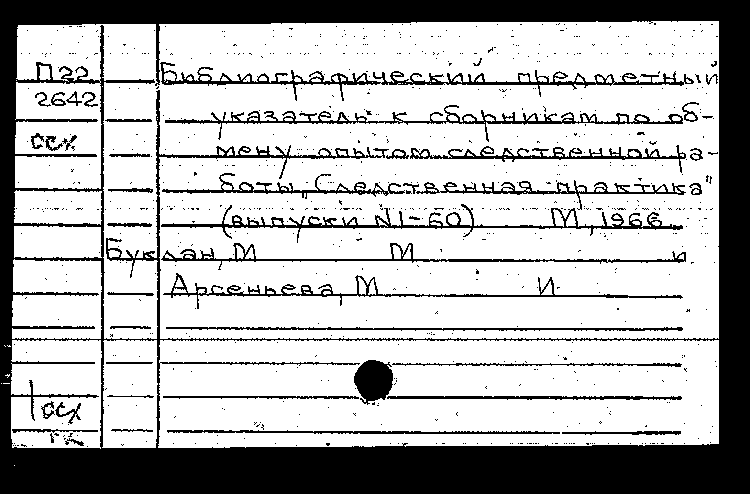 П22 Библиографический предметный
2642 указатель к сборникам по об-
осх мену опытом следственной ра-
боты „Следственная практика"
(выпуски N1-60) М., 1966
Буклан, М М и
Арсеньева, М И
осх
ГК